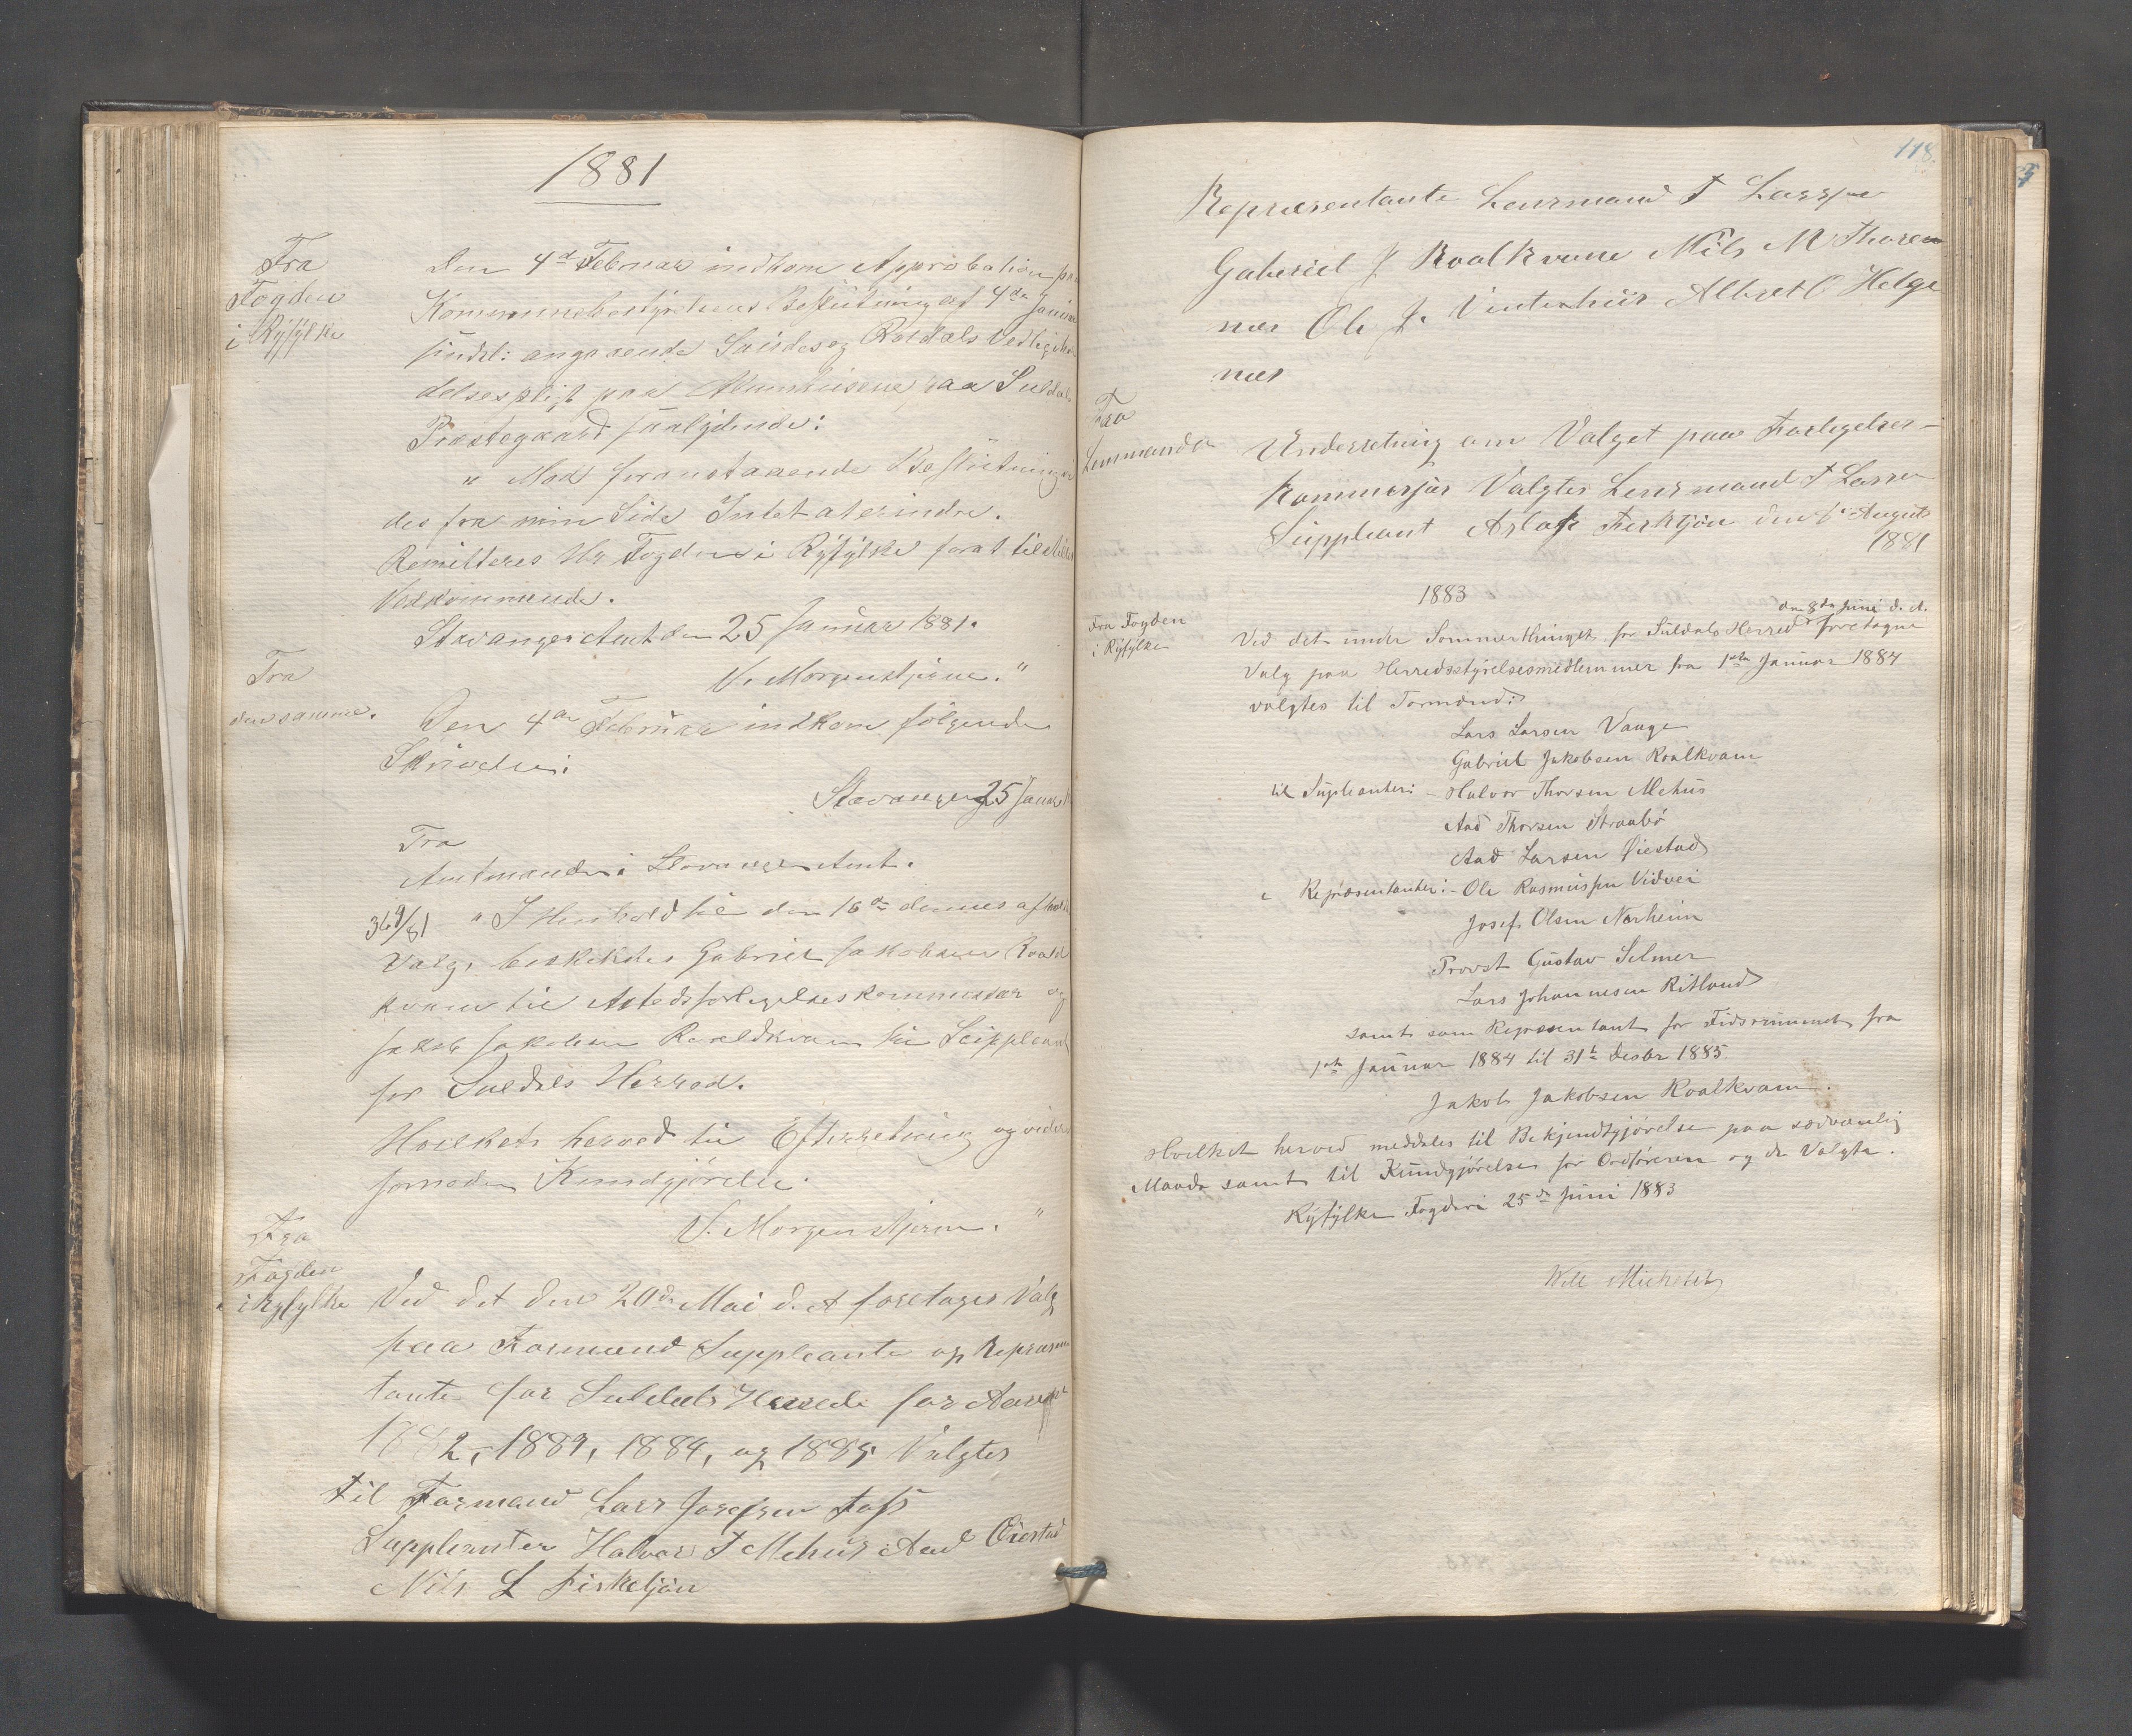 1881
Fra
Fogden
i Ryfylke
Den 4de Februar indkom Approbation paa
Kommunebestyrelsens Beslutning af 4de Januar
sidstl: angaaende Sauds og Røldals Vedligehol
delsespligt paa Mannhusene paa Suldals
Præstegaard saalydende:
" Mod foranstaaende Beslutning
des fra min Side Intet at erindre.
Remitteres Hr Fogden i Ryfylke forat tilstilles
Vedkommende.
Stavanger Amt den 25 Januar 1881.
V. Morgenstjerne."
Fra
den samme.
Den 4de Februar indkom følgende
Skrivelse:
Stavanger 25 Januar
Fra
Amtmanden i Stavanger Amt.
369/81 " I Henhold til den 16de dennes afholdte
Valg, beskikkes Gabriel Jakobsen Roald
kvam til Astedsforligelseskommissær og
Jakob Jakobsen Roaldkvam til Suppleant
for Suldals Herred.
Hvilket herved til Efterretning og videre
fornøden Kundgjørelse.
V. Morgenstjerne."
Fra
Fogden
i Ryfylke
Ved det den 20de Mai d. A foretagne Valg
paa Formænd Suppleanter og Repræsen
tanter for Suldals Herred for Aarene
1882, 1883, 1884, og 1885 Valgtes
til Formænd Lars Josefsen Foss
Suppleanter Halvor T Mehus Aad Øiestad
Nils L Fiskekjøn
118.
Repræsentante Lensmand T Larsen
Gabriel J Roalkvam Nils N Thoren
næs Ole J. Vintrehus Albret O Helge
næs
Fra
Lensmanden
Underretning om Valget paa Forligelses-
Kommisjær Valgtes Lensmand T Larsen
Suppleant Aslak Fiskkjøn den 1ste August
1881
1883
Fra Fogden
i Ryfylke
den 8de Juni d. A.
Ved det under Sommerthinget for Suldals Herred foretagne
Valg paa Herredsstyrelsesmedlemmer fra 1ste Januar 1884
valgtes til Formænd:
Lars Larsen Vaage
Gabriel Jakobsen Roalkvam
til Supleanter: - Halvor Thorsen Mehus
Aad Thorsen Straabø
Aad Larsen Øiestad
" Repræsentanter: - Ole Rasmussen Vidvei
Josef Olsen Narheim
Provst Gustav Selmer
Lars Johannesen Ritland
samt som Repræsentant for Tidsrummet fra
1ste Januar 1884 til 31te Desbr 1885.
Jakob Jakobsen Roalkvam.
Hvilket herved meddeles til Bekjendtgjørelse paa sædvanlig
Maade samt til Kundgjørelse for Ordføreren og de Valgte.
Ryfylke Fogderi 25de Juni 1883
Will Michelet